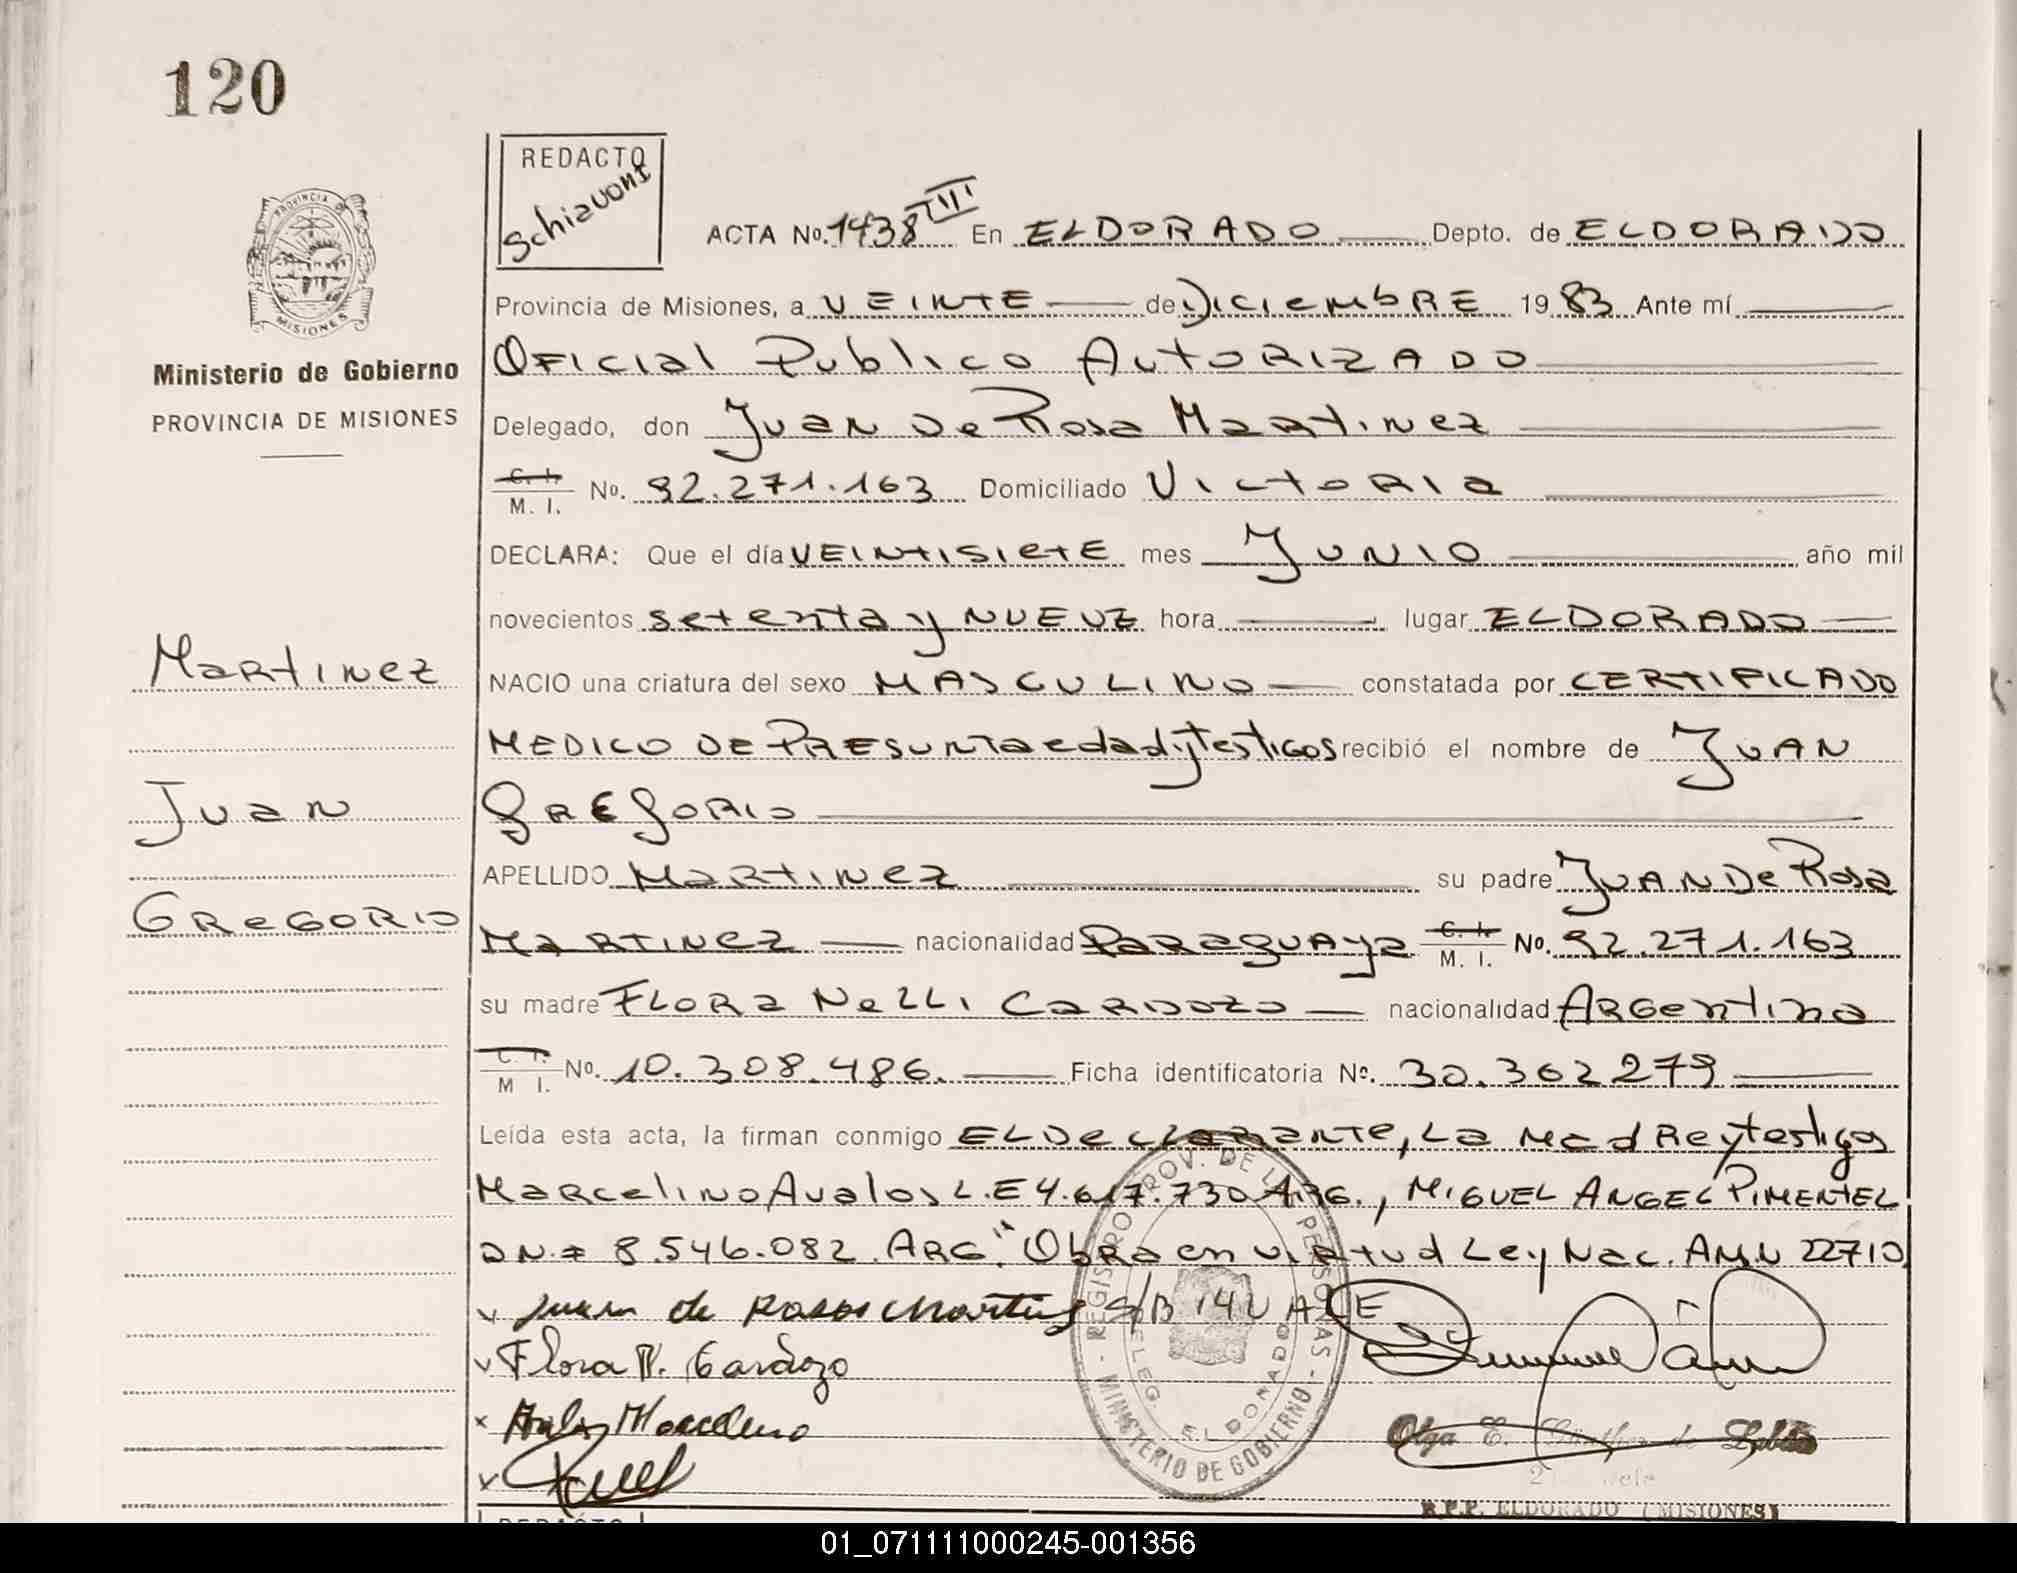 120
REDACTO
Schiavoni
ACTA No. 1438 TIII En ELDORADO Depto. de ELDORADO
Provincia de Misiones, a VEINTE de DiciembRE 1983 Ante mí
Oficial Publico AutoRIZADO
Ministerio de Gobierno
PROVINCIA DE MISIONES
Delegado, don Juan De Rosa Martinez
C. I.
M. I. No. 92.271.163 Domiciliado Victoria
DECLARA: Que el día VEINTISIETE mes JUNIO año mil
novecientos setenta y NUEVE hora lugar ELDORADO
Martinez
NACIO una criatura del sexo MASCULINO constatada por CERTIFICADO
MEDICO DE PRESUNTA edad y testigos recibió el nombre de JUAN
Juan
GREGORIO
APELLIDO Martinez su padre JUAN De Rosa
GREGORIO
MARTINEZ nacionalidad Paraguaya C. I. M. I. No. 92.271.163
su madre FLORA NELLI CARDOZO nacionalidad Argentina
C. I.
M I. No. 10.308.486. Ficha identificatoria No. 30.362279
Leída esta acta, la firman conmigo EL Declarante, La Madre y testigos
Marcelino Avalos L.E 4.617.730 ARG., MIGUEL ANGEL PIMENTEL
DN.# 8.546.082. ARG. "Obra en virtud Ley Nac. AMN 22710
Juan de Rosa Martinez S/B
Flora N. Cardozo
Avalos Marcelino
REGISTRO PROV. DE LAS PERSONAS
DELEG. ELDORADO
MINISTERIO DE GOBIERNO
Olga E. de
R.P.P. ELDORADO (MISIONES)
REDACTO
01_071111000245-001356